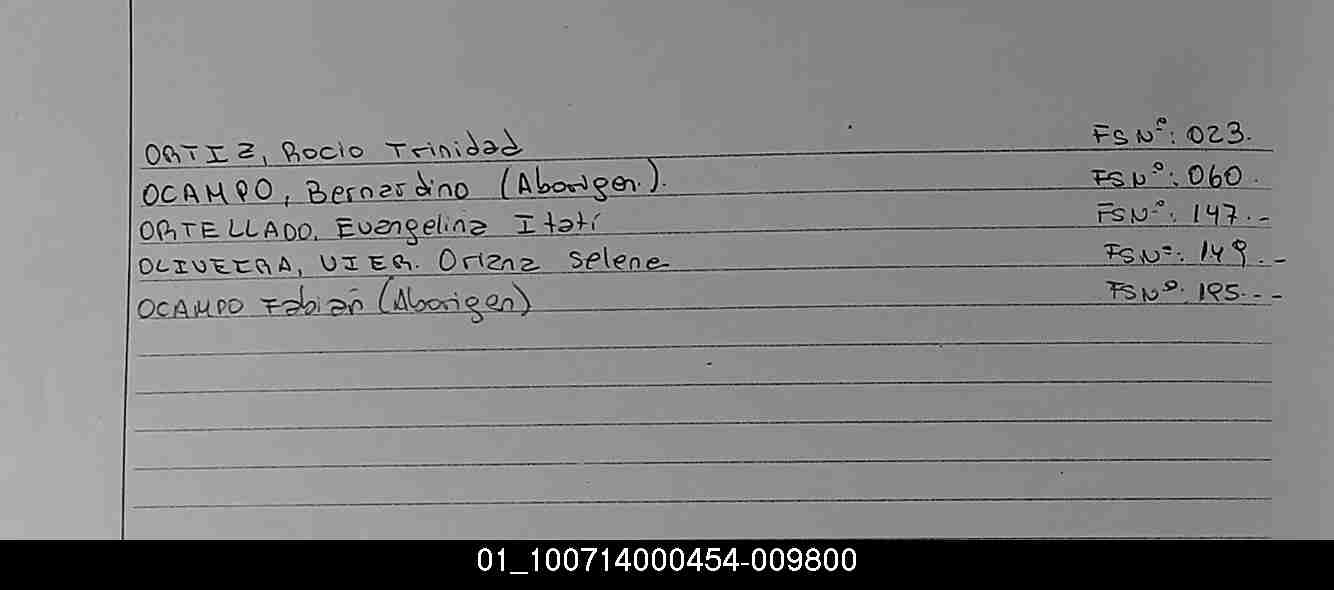 ORTIZ, Rocio Trinidad FS Nº: 023.
OCAMPO, Bernardino (Aborigen.). FS Nº: 060.
ORTELLADO, Evangelina Itatí FS Nº: 147.-
OLIVEIRA, VIER. Oriana Selene FS Nº: 149.-
OCAMPO Fabian (Aborigen) FS Nº. 195.--
01_100714000454-009800